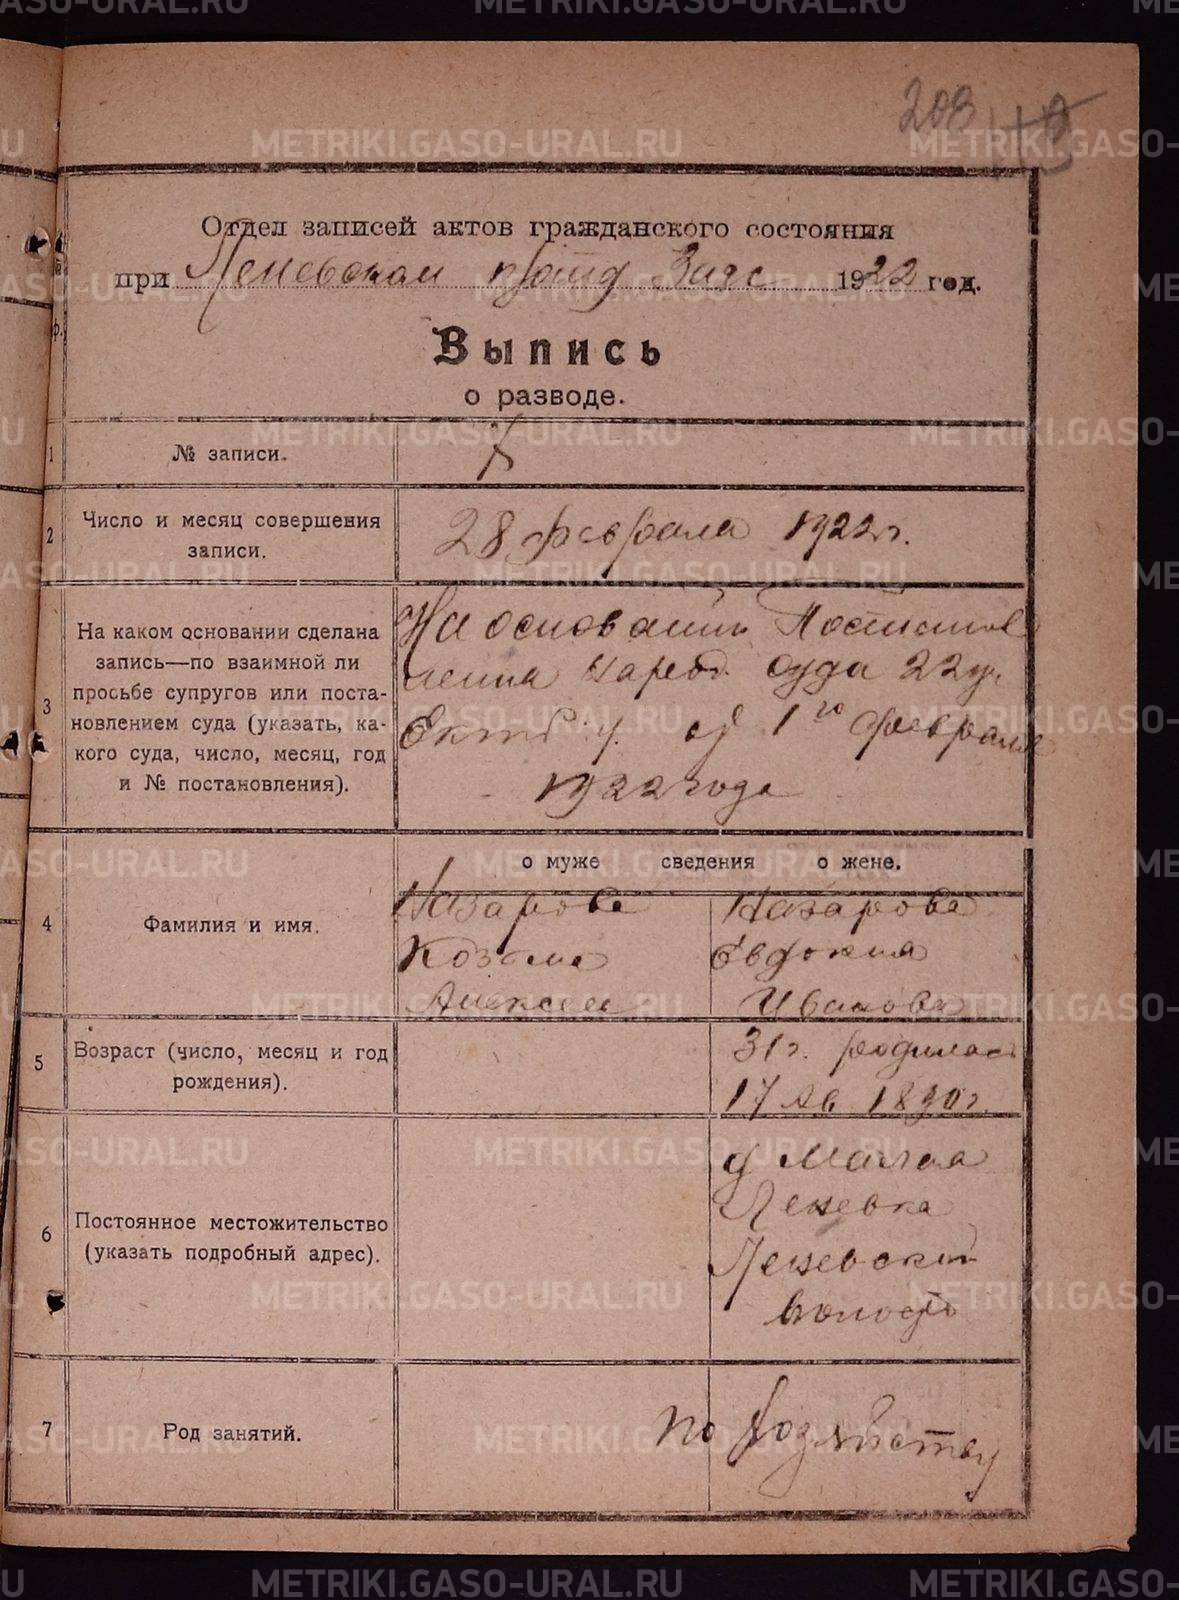 208
Отдел записей актов гражданского состояния
при Леневском Заяс 1922 год.
Выпись
о разводе.
1 № записи.
2 Число и месяц совершения записи. 28 февраля 1922 г.
3 На каком основании сделана
запись—по взаимной ли
просьбе супругов или поста-
новлением суда (указать, ка-
кого суда, число, месяц, год
и № постановления).
На основании Постанов
ления Народ. суда 22 уч.
Екатб у. от 1го февраля
1922 года
о муже сведения о жене.
4 Фамилия и имя.
Назарова
Козьма
Алексеев
Назарова
Евдокия
Иванова
5 Возраст (число, месяц и год
рождения).
31 г. родилась
17 Ав 1890 г.
6 Постоянное местожительство
(указать подробный адрес).
д Малая
Леневка
Леневский
волость
7 Род занятий.
по хозяйству
METRIKI.GASO-URAL.RU